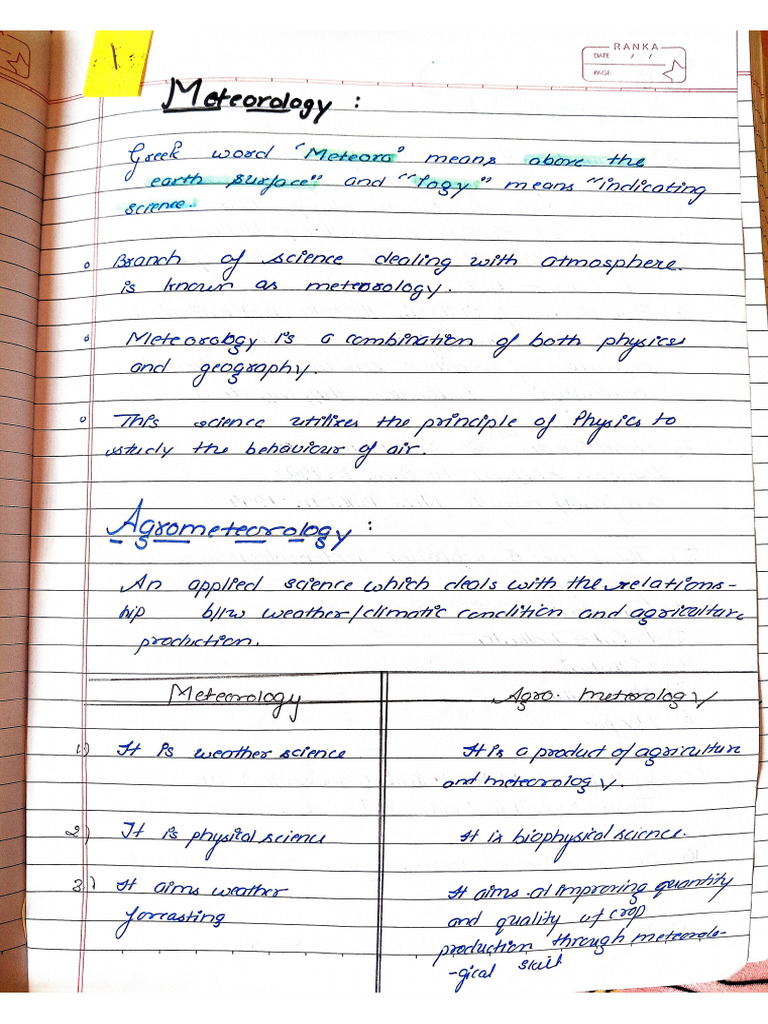 1
RANKA
DATE / /
PAGE
Meteorology :
Greek word "Meteora" means above the
earth surface" and "logy" means "indicating
science.
Branch of science dealing with atmosphere.
is known as meteorology.
Meteorology is a combination of both physics
and geography.
This science utilizes the principle of Physics to
study the behaviour of air.
Agrometeorology :
An applied science which deals with the relations-
hip b/w weather/climatic condition and agriculture
production.
Meteorology Agro. meterology
1) It is weather science It is a product of agriculture
and meteorology.
2) It is physical science It is biophysical science.
3) It aims weather It aims at improving quantity
forcasting and quality of crop
production through meteorolo-
-gical skill